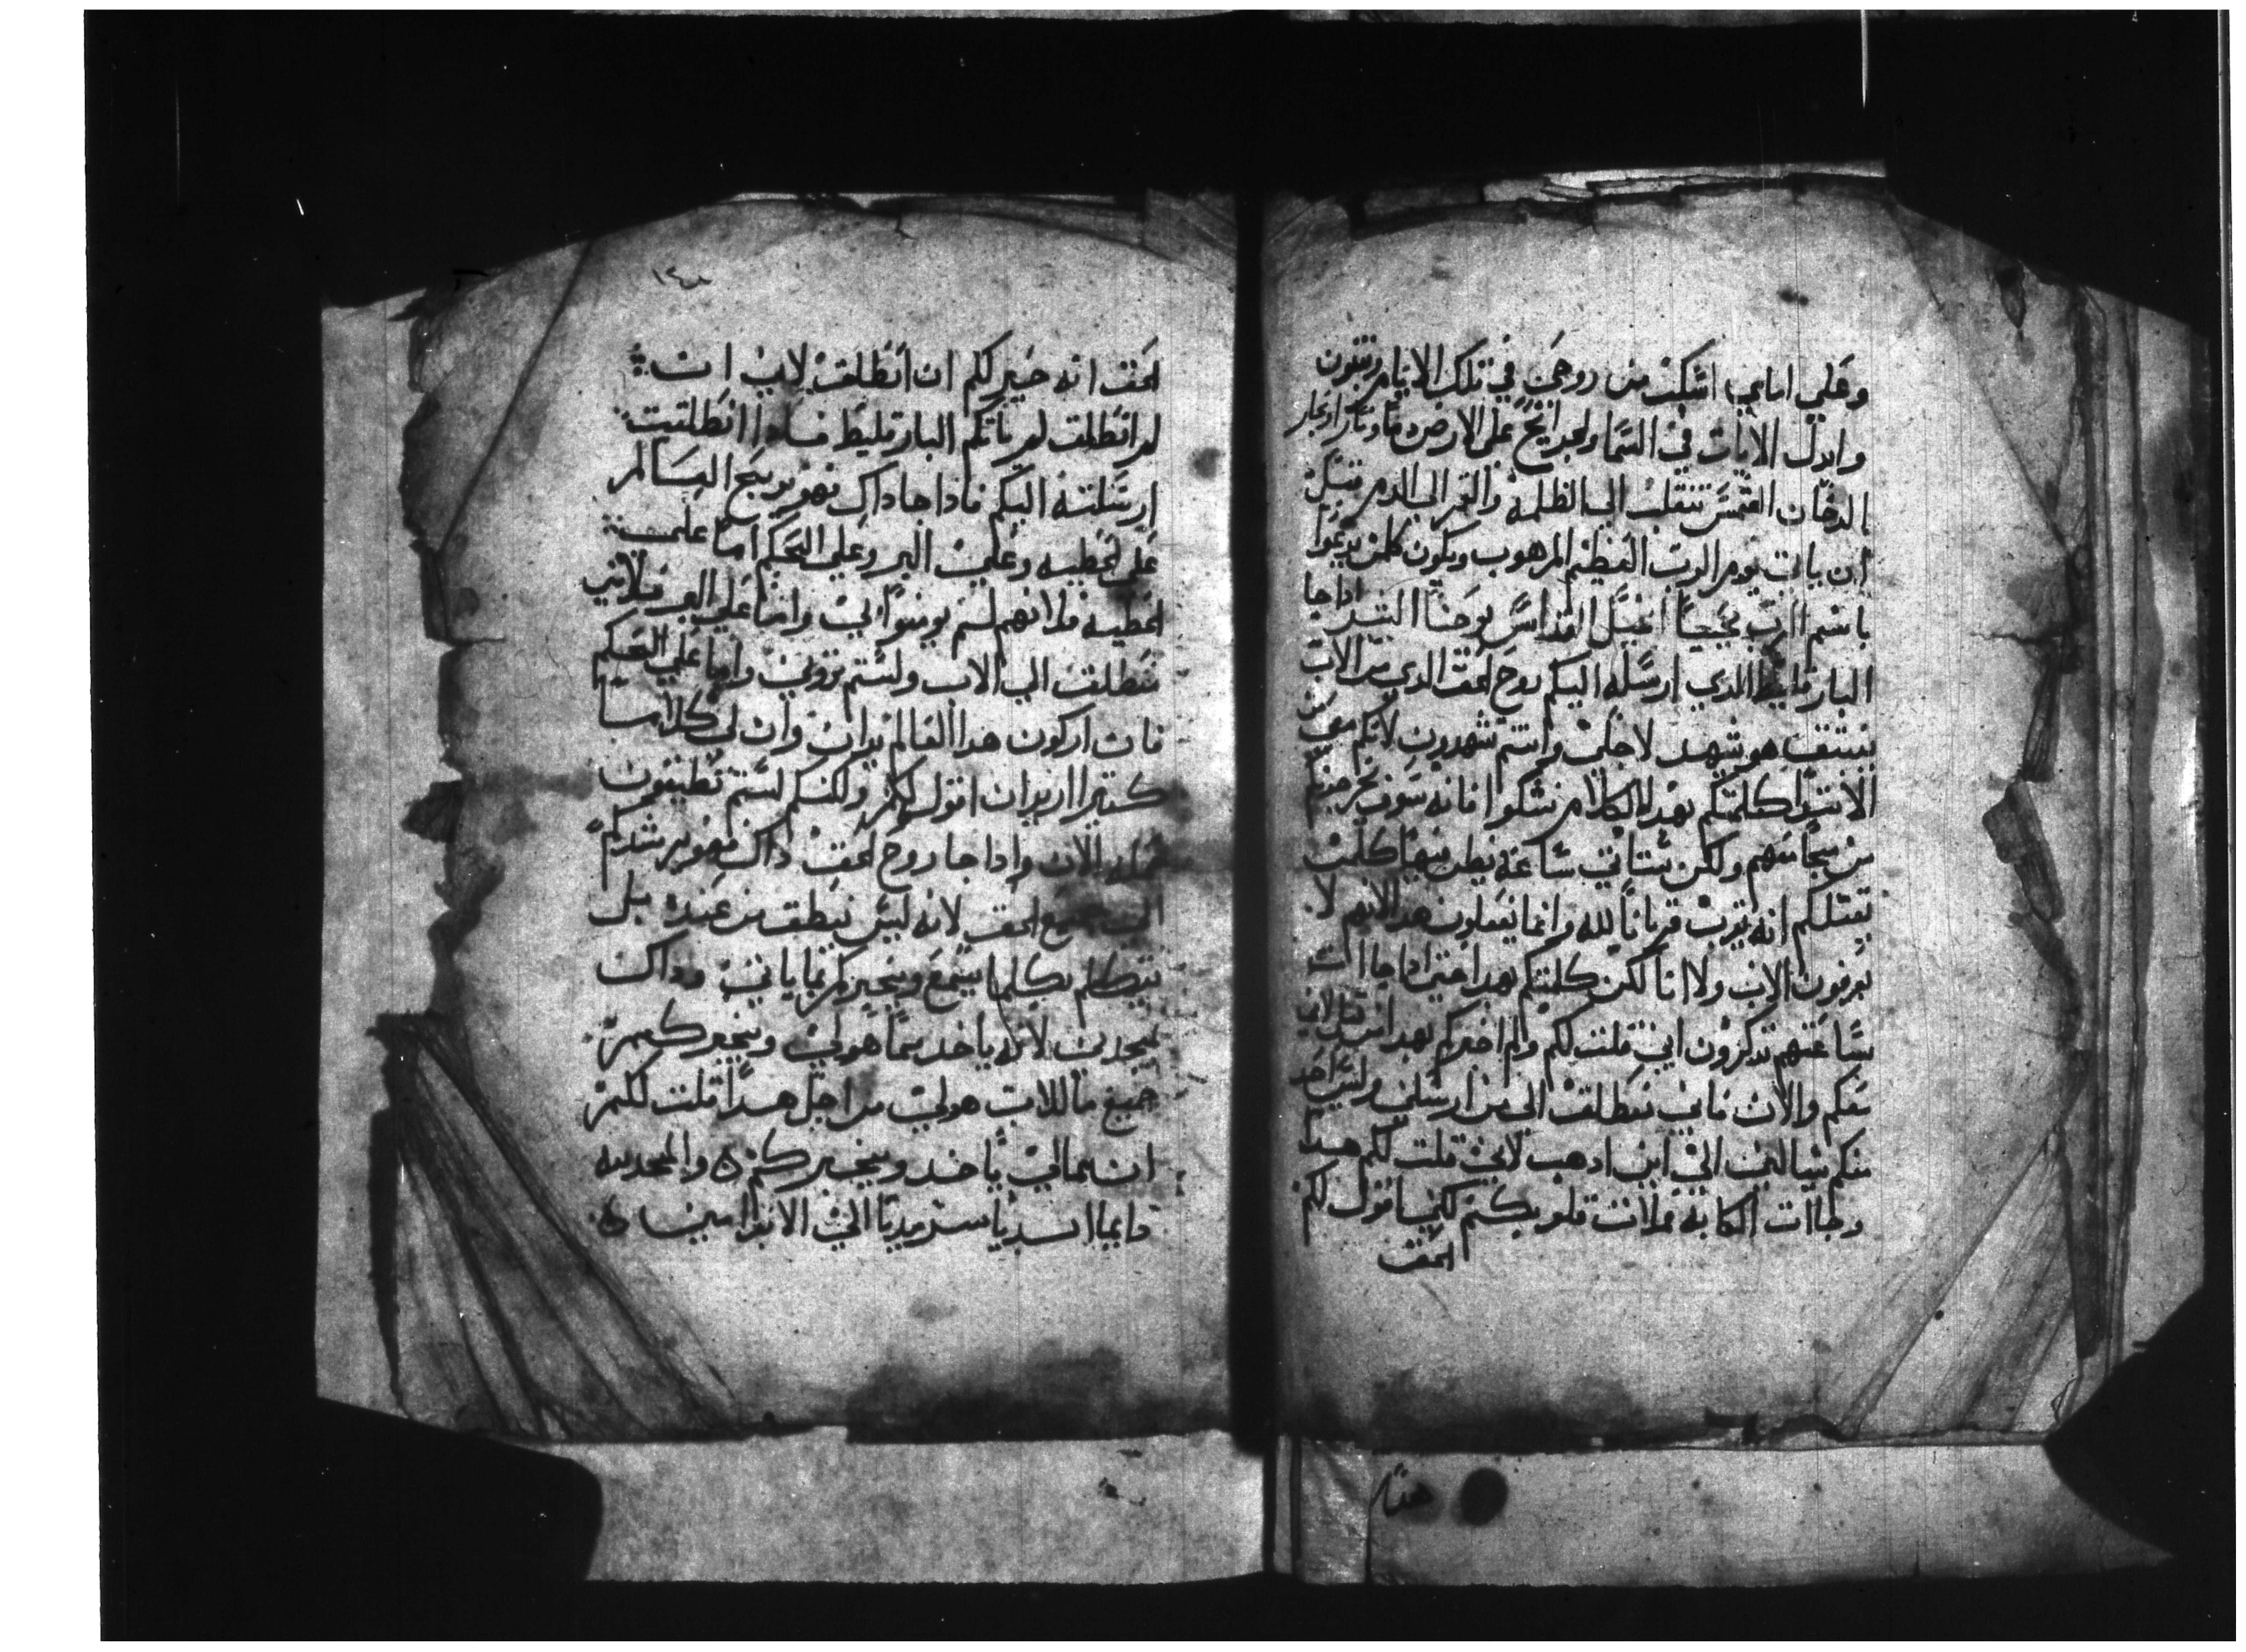 وعلي اماي اسكب من روحي في تلك الايام يتنبون
وابدل الايات في السما والجرايح علي الارض دما ونارا وبخار
الدخان الشمس تنقلب الي الظلمه والقمر الي الدم قبل
ان ياتي يوم الرب العظيم المرهوب ويكون كلمن يدعوا
باسم الرب يحيا انجيل القداس يوحنا اذا جا
البارقليط الذي ارسله اليكم روح الحق الذي من الاب
ينبثق هو يشهد لاجلي وانتم تشهدون لانكم معي
الابتدا كلمتكم بهذا الكلام تشكوا فانه سوف يخرجونكم
من مجامعهم ولكن ستاتي ساعة يظن فيها كلمن
يقتلكم انه يقرب قربانا لله وانما يفعلون هذا لانهم لا
يعرفون الاب ولا انا لكن كلمتكم بهذا حتي اذا جاات
ساعتهم تذكرون اني قلت لكم ولم اخبركم بهذا من قبل لاني
معكم والان فاني ننطلق الي من ارسلني وليس احد
منكم يسالني الي اين اذهب لاني قلت لكم هذا
وجاات الكابة فملات قلوبكم لكني اقول لكم
الحق
١٤٠
الحق انه خير لكم ان انطلق لابي ان
لم انطلق لم ياتكم البارقليط فاذا انطلقت
ارسلته اليكم فاذا جا ذاك فهو يوبخ العالم
علي الخطيه وعلي البر وعلي الحكم اما علي
الخطيه فلانهم لم يومنوا بي واما علي البر فلاني
ننطلق الي الاب ولستم تروني واما علي الحكم
فان اركون هذا العالم يدان وان لي كلاما
كثيرا اريد ان اقول لكم ولكنكم لستم تطيقون
حمله الان واذا جا روح الحق ذاك فهو يرشدكم
الي جميع الحق لانه ليس ينطق من عنده بل
يتكلم بكلما يسمع ويخبركم بما ياتي وذاك
يمجدني لانه ياخذ مما هو لي ويخبركم
جميع ما للاب هو لي من اجل هذا قلت لكم
ان مما لي ياخذ ويخبركم ه والمجد لله
دايما ابديا سرمديا الي الابد امين ه